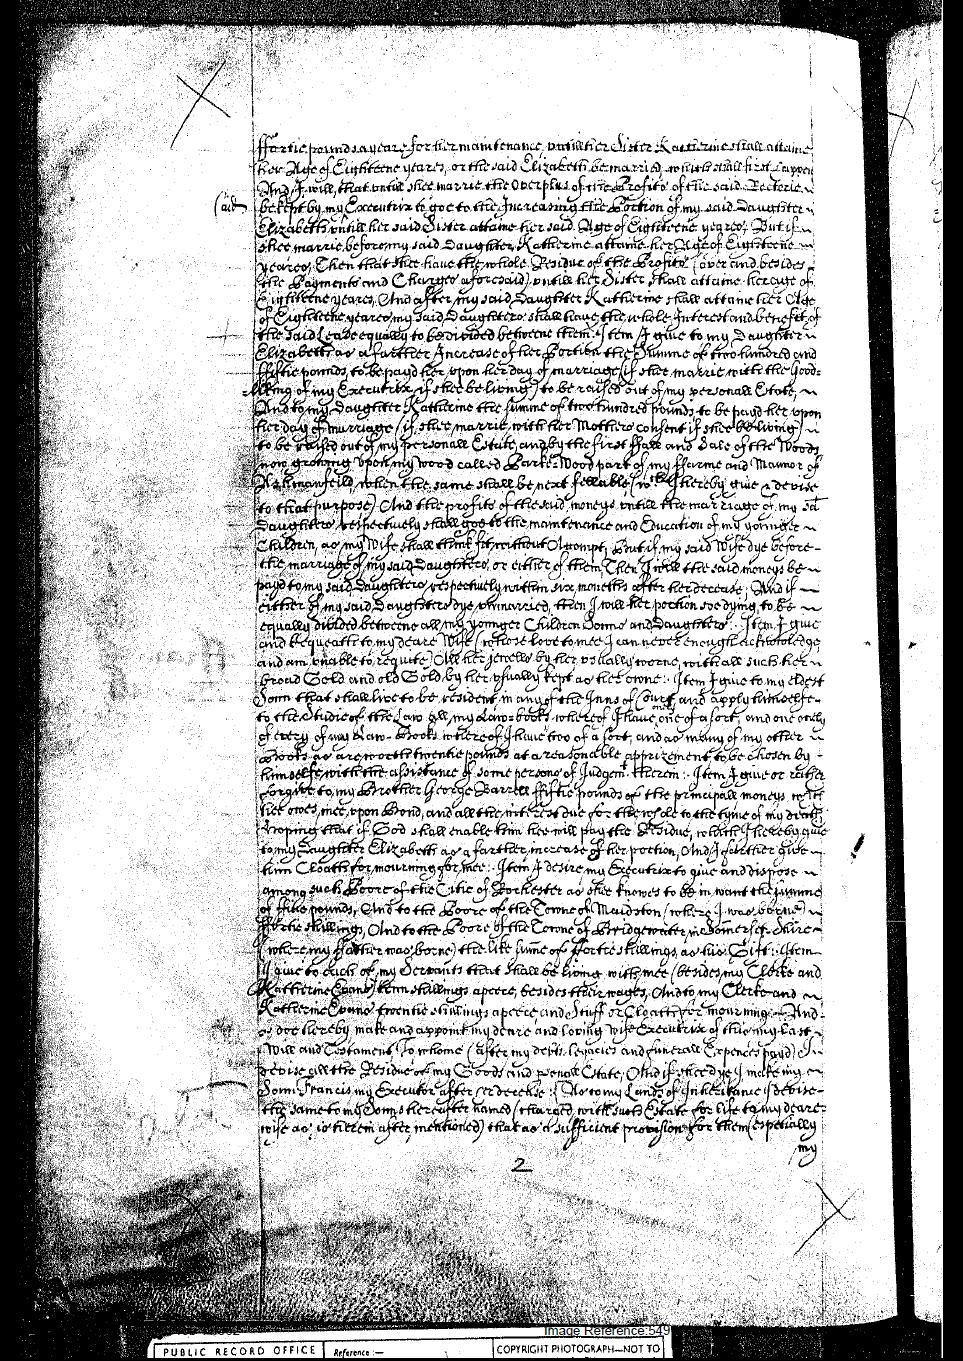 ffortie pounds a yeare for her maintenance, vntill her Sister Katherine shall attaine
her Age of Eighteene yeares, or the said Elizabeth be married, which shall first happen
And I will, that vntill shee marrie, the Overplus of the Profits of the said Rectorie
said
be kept by my Executrix to goe to the Increasing the Portion of my said Daughter
Elizabeth vntill her said Sister attaine her said Age of Eighteene yeares, But if
shee marrie before my said Daughter Katherine attaine her Age of Eighteene
yeares, Then that shee have the whole Residue of the Profits (over and besides
the Payments and Charges aforesaid) vntill her Sister shall attaine her age of
Eighteene yeares, And after my said Daughter Katherine shall attaine her Age
of Eighteene yeares, my said Daughters shall have the whole Interest and benefit of
the said Lease equally to be divided betweene them: Item I give to my Daughter
Elizabeth as a farther Increase of her Portion the Summe of two hundred and
ffiftie pounds, to be payd her vpon her day of marriage (if shee marrie with the Good-
-liking of my Executrix if she be living) to be raised out of my personall Estate,
And to my Daughter Katherine the summe of two hundred pounds to be payd her vpon
her day of marriage (if shee marrie with her Mothers consent if shee be living)
to be raised out of my personall Estate, and by the first Sale of the Woods
now growing vpon my Wood called Parke-Wood part of my ffarme and Mannor of
when the same shall be next fellable (wch I hereby give & devise
to that purpose) And the profits of the said moneys vntill the marriage of my sd
Daughters respectively shall goe to the maintenance and Education of my younger
Children, as my Wife shall think fit, without Accompt, But if my said Wife dye before
the marriage of my said Daughters, or either of them Then I will the said moneys be
payd to my said Daughters respectively within six moneths after her decease; And if
either of my said Daughters dye vnmarried, then I will her portion soe dying, to be
equally divided betweene all my younger Children Sonns and Daughters: Item I give
and bequeath to my deare Wife (whose love to mee I can never enough acknowledge
and am vnable to requite) All her jewells by her vsually worne, with all such her
broad Gold and old Gold by her vsually kept as her owne: Item I give to my eldest
Sonn that shall live to be resident in any of the Inns of Court, and apply himselfe
to the Studie of the Law All my Law-books whereof I have one of a sort, and one onely
of every of my Law-Books whereof I have two of a sort, and as many of my other
Books as are worth twentie pounds at a reasonable apprizement, to be chosen by
himselfe, with the assistance of some persons of Judgemt. therein: Item I give or rather
forgive to my Brother George Barrell ffiftie pounds of the principall moneys wch
hee owes mee, vpon Bond, and all the interest due for the whole to the tyme of my death
Hoping that if God shall enable him hee will pay the Residue, which I hereby give
to my Daughter Elizabeth as a farther increase of her portion, And I farther give
him Cloath for mourning for mee: Item I desire my Executrix to give and dispose
among such Poore of the Citie of Rochester as shee knowes to be in want the summe
of five pounds, And to the Poore of the Towne of Maidston (where I was borne)
ffortie shillings, And to the Poore of the Towne of Bridgewater in Somerset-Shire
(where my ffather was borne) the like sume of ffortie shillings, as his Gift: Item
I give to each of my Servants that shall be living with mee (besides my Clerke and
Katherine Evans) tenn shillings apeece, besides their wages, And to my Clerke and
Katherine Evans twentie shillings apeece and Stuff or Cloath for mourning: And
I doe hereby make and appoint my deare and loving Wife Executrix of this my last
Will and Testament To whome (after my debts, legacies and funerall Expences payd) I
devise all the Residue of my Goods and psonall Estate, And if shee dye I make my
Sonn Francis my Executor after her decease: As to my Lands of Inheritance I devise
the same to my Sonns hereafter named (charged with such Estate for life to my deare
wife as is herein after mentioned) that as a sufficient provision for them (especially
my
2
Image Reference:549
PUBLIC RECORD OFFICE
Reference :—
COPYRIGHT PHOTOGRAPH—NOT TO